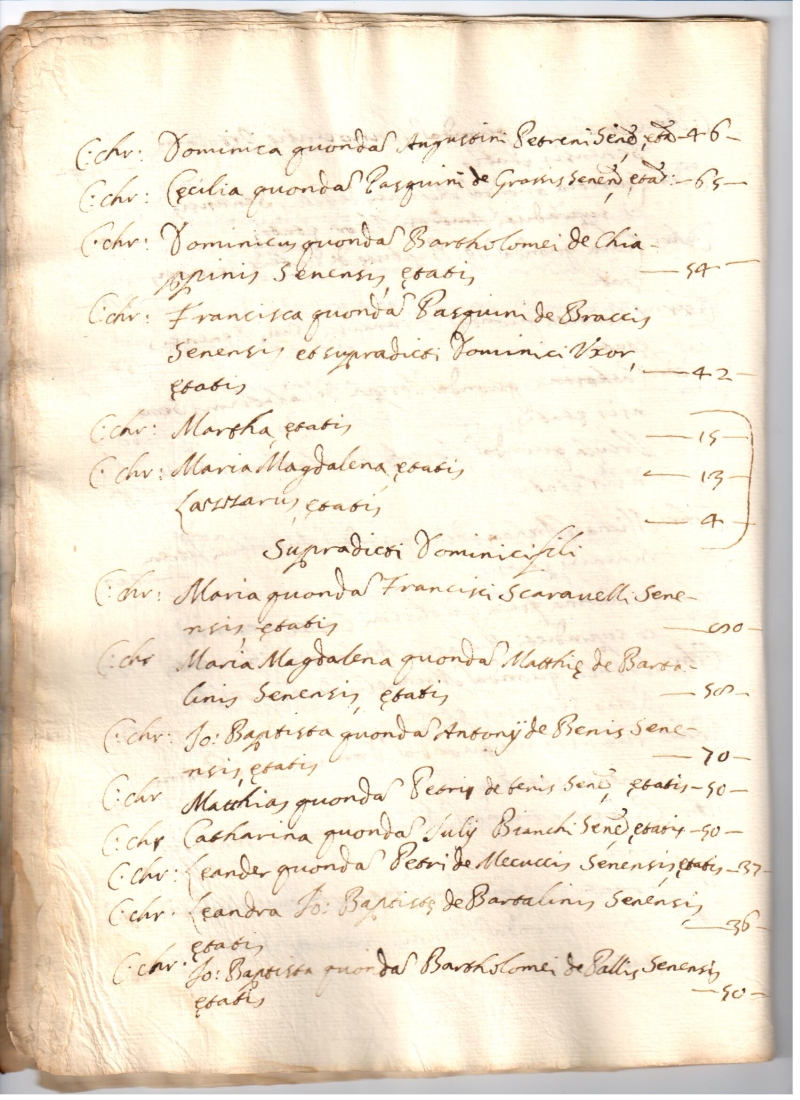 C: chr: Dominica quonda͠ Augustini Petreni Sene͠, eta͠ – 46 –
C: chr: Cęcilia quonda͠ Pasquini de Grassis Senen͠, eta͠: – 65 –
C: chr: Dominicus quonda͠ Bartholomei de Chia-
ppinis Senensis, ętatis — 54 –
C: chr: Francisca quonda͠ Pasquini de Braccis
Senensis et supradicti Dominici Uxor,
ętatis — 42 –
C: chr: Martha, ętatis — 15 –
C: chr: Maria Magdalena, ętatis — 13 –
Lazzarus, ętatis — 4 –
Supradicti Dominici filii
C: chr: Maria quonda͠ Francisci Scaravelli Sene-
nsis, ętatis
C: chr Maria Magdalena quonda͠ Matthię de Barta-
linis Senensis, ętatis
C: chr: Jo: Baptista quonda͠ Antonij de Benis Sene-
nsis, ętatis — 70 –
C: chr Matthias quonda͠ Petri de benis Sene͠, ętatis – 50 –
C: chr Catharina quonda͠ Julij Bianchi Sene͠, ętatis – 50 –
C: chr: Leander quonda͠ Petri de Mecuccis Senensis, ętatis – 37 –
C: chr. Leandra Jo: Baptistę de Bartalinis Senensis,
ętatis — 36 –
C: chr. Jo: Baptista quonda͠ Bartholomei de Pallis Senensis
ętatis — 50 –